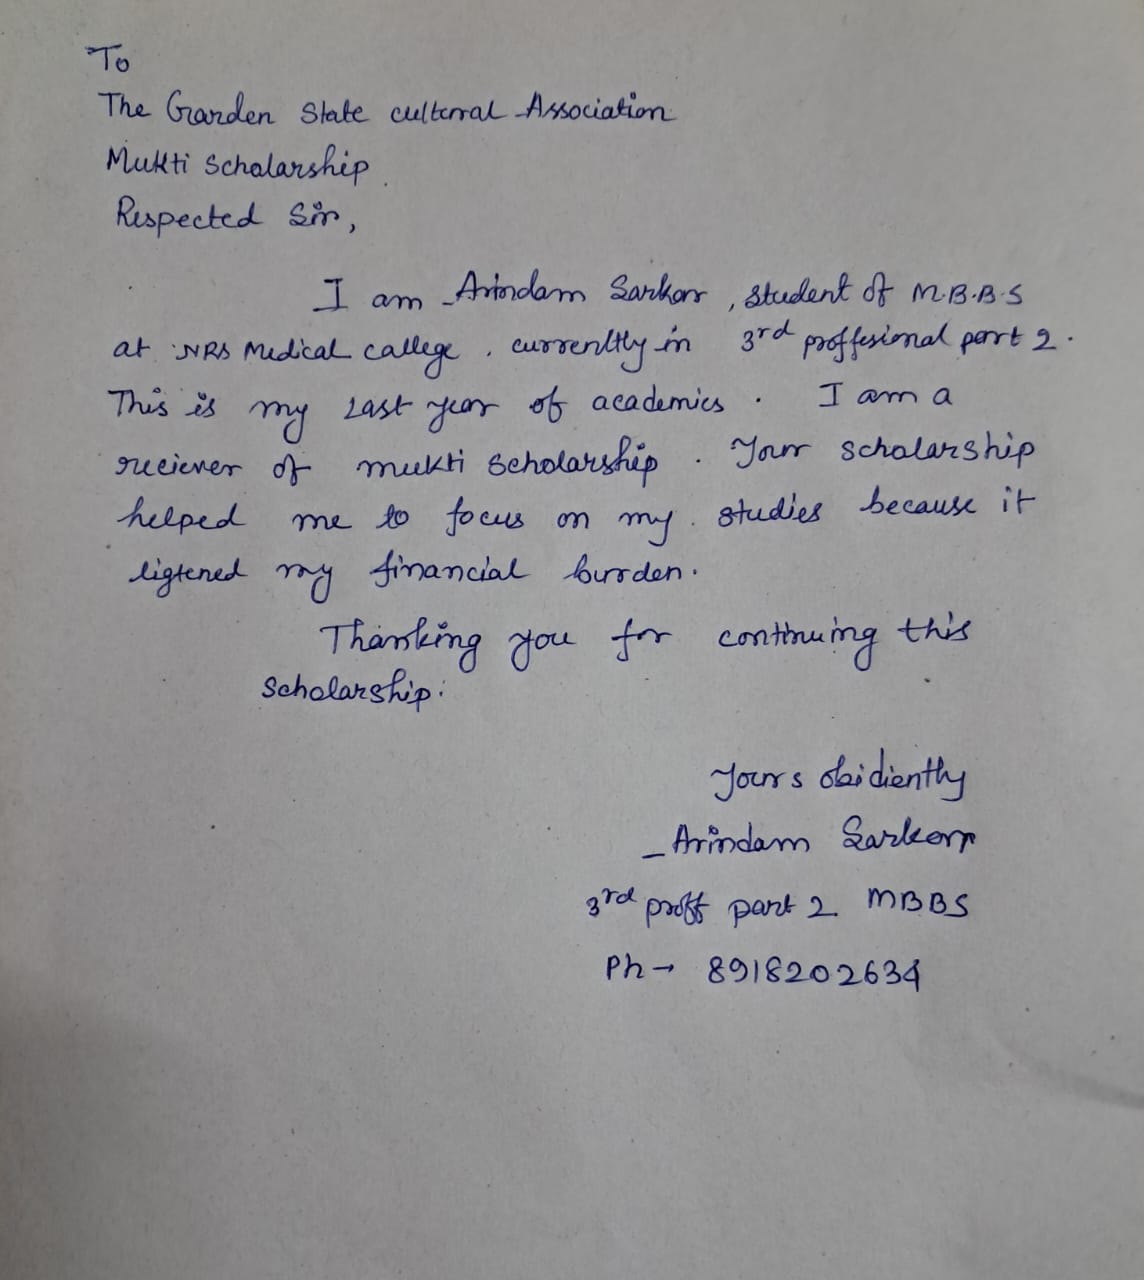 To
The Garden State cultural Association
Mukti Scholarship
Respected Sir,
I am Arindam Sarkar, student of M.B.B.S
at NRS Medical college, currenltly in 3rd proffesional part 2.
This is my last year of academics. I am a
reciever of mukti scholarship. Your scholarship
helped me to focus on my studies because it
ligtened my financial burden.
Thanking you for continuing this
scholarship.
Yours obidiently
Arindam Sarkar
3rd proff part 2 MBBS
Ph → 8918202634